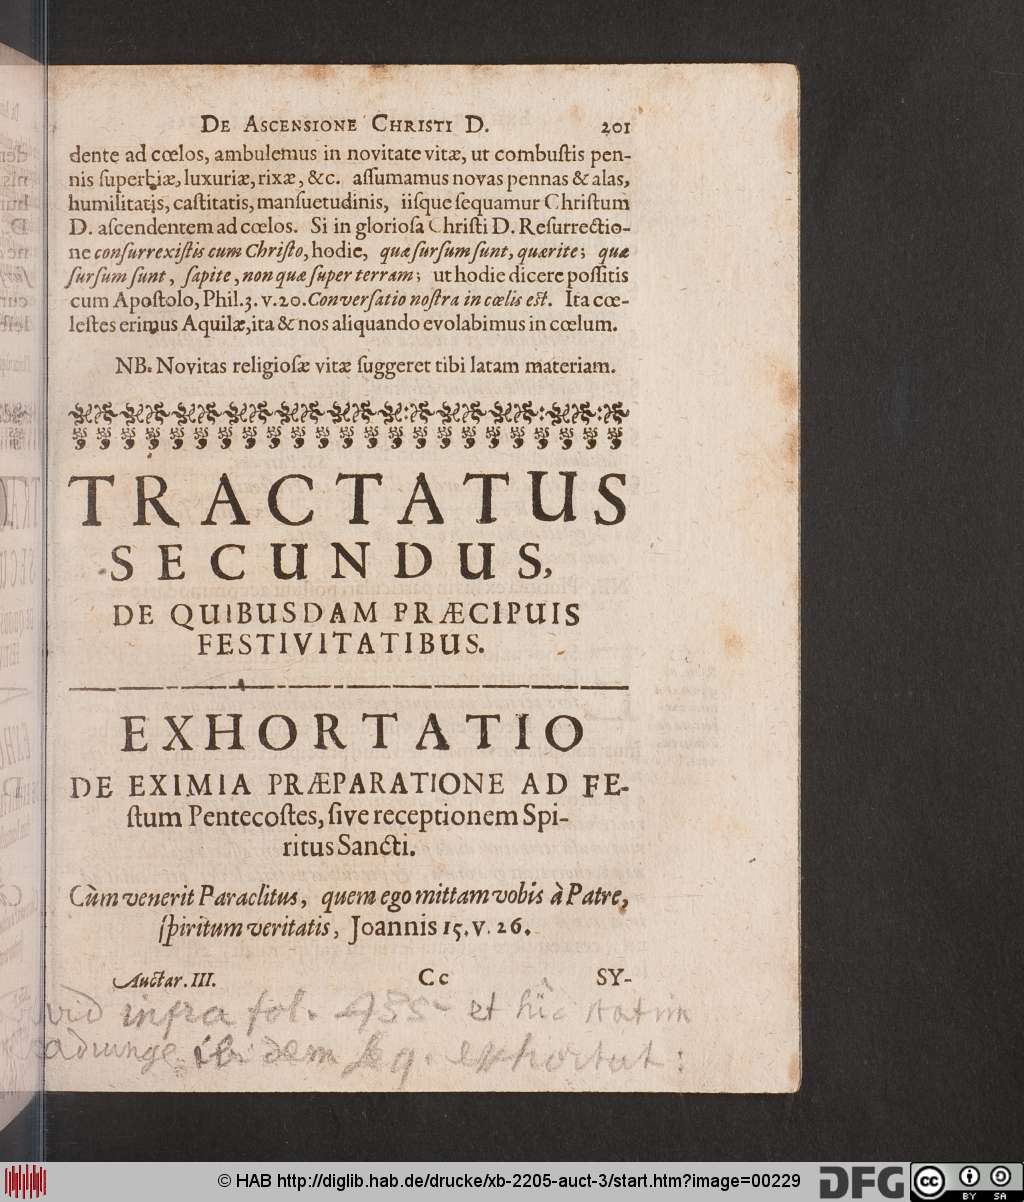 De Ascensione Christi D. 201
dente ad cœlos, ambulemus in novitate vitæ, ut combuſtis pen-
nis ſuperbiæ, luxuriæ, rixæ, &c. aſſumamus novas pennas & alas,
humilitatis, caſtitatis, manſuetudinis, iiſque ſequamur Chriſtum
D. aſcendentem ad cœlos. Si in glorioſa Chriſti D. Reſurrectio-
ne conſurrexiſtis cum Chriſto, hodie, quæ ſurſum ſunt, quærite; quæ
ſurſum ſunt, ſapite, non quæ ſuper terram; ut hodie dicere poſſitis
cum Apoſtolo, Phil. 3. v. 20. Converſatio noſtra in cœlis eſt. Ita cœ-
leſtes erimus Aquilæ, ita & nos aliquando evolabimus in cœlum.
NB. Novitas religioſæ vitæ ſuggeret tibi latam materiam.
TRACTATUS
SECUNDUS,
DE QUIBUSDAM PRÆCIPUIS
FESTIVITATIBUS.
EXHORTATIO
DE EXIMIA PRÆPARATIONE AD FE-
ſtum Pentecoſtes, ſive receptionem Spi-
ritus Sancti.
Cùm venerit Paraclitus, quem ego mittam vobis à Patre,
ſpiritum veritatis, Joannis 15. v. 26.
Auctar. III. Cc SY-
vid infra fol. 455 et hic statim
adiunge ibidem seq. exhortat:
© HAB http://diglib.hab.de/drucke/xb-2205-auct-3/start.htm?image=00229 DFG cc BY SA